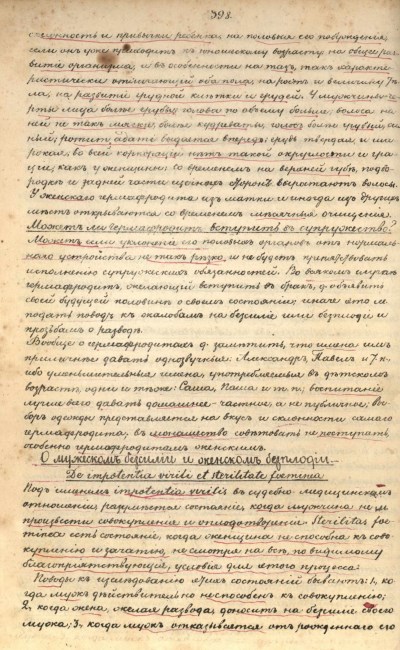 398.
склонность и привычки ребенка на половыя его побужденія,
если онъ уже приходитъ къ юношескому возрасту на общее раз-
витіе организма, и въ особенности на тазъ, такъ характе-
ристически отличающій оба пола; на ростъ и величину тѣ-
ла, на развитіе грудной клѣтки и грудей. У мужчины че-
рты лица болѣе грубыя, голова по объему больше, волоса на
ней не такъ мягки, болѣе кудреваты, голосъ болѣе грубый, си-
льный; pomum adami выдается впередъ; грудь твердая и ши-
рокая, во всей корпораціи нѣтъ такой округлости и гра-
ціи, какъ у женщины: со временемъ на верхней губѣ, подбо-
родкѣ и задней части щекъ выростаютъ волосы.
У женскаго гермафродита изъ матки и иногда изъ другихъ
мѣстъ открываются со временемъ мѣсячныя очищенія.
Можетъ ли гермафродитъ вступить въ супружество?
Можетъ если уклоненіе его половыхъ органовъ отъ нормаль-
наго устройства не такъ рѣзко, и не будетъ препятствовать
исполненію супружескихъ обязанностей. Во всякомъ случаѣ
гермафродитъ, желающій вступить въ бракъ, д. объявить
своей будущей половинѣ о своемъ состояніи, иначе это м.
подать поводъ къ жалобамъ на безсиліе или безплодіе и
прозьбамъ о разводѣ.
Вообще о гермафродитахъ д. замѣтить, что имена имъ
приличнѣе давать однозвучныя: Александръ, Павелъ и т. п.
ибо уменьшительныя имена, употребляемыя въ дѣтскомъ
возрастѣ, одни и тѣже: Саша, Паша и т. п.; воспитаніе
лучше всего давать домашнее - частное, а не публичное; вы-
боръ одежды представляется на вкусъ и склонности самаго
гермафродита; въ монашество совѣтовать не поступать
особенно гермафродитамъ женскимъ.
О мужескомъ безсиліи и женскомъ безплодіи.
De impotentia virili et sterilitate foeminea
Подъ именемъ impotentia virilis въ судебно-медицинскомъ
отношеніи, разумѣется состояніе, когда мужчина не м.
произвести совокупленія и оплодотворенія. Sterilitas foe-
minea есть состояніе, когда женщина не способна къ сово-
купленію и зачатію, не смотря на всѣ, по видимому
благопріятствующія, условія для этого процесса.
Поводы къ изслѣдованію этихъ состояній бываютъ: 1, ко-
гда мужъ дѣйствительно не способенъ къ совокупленію;
2, когда жена, желая развода, доноситъ на безсиліе своего
мужа; 3, когда мужъ отказывается отъ рожденнаго его